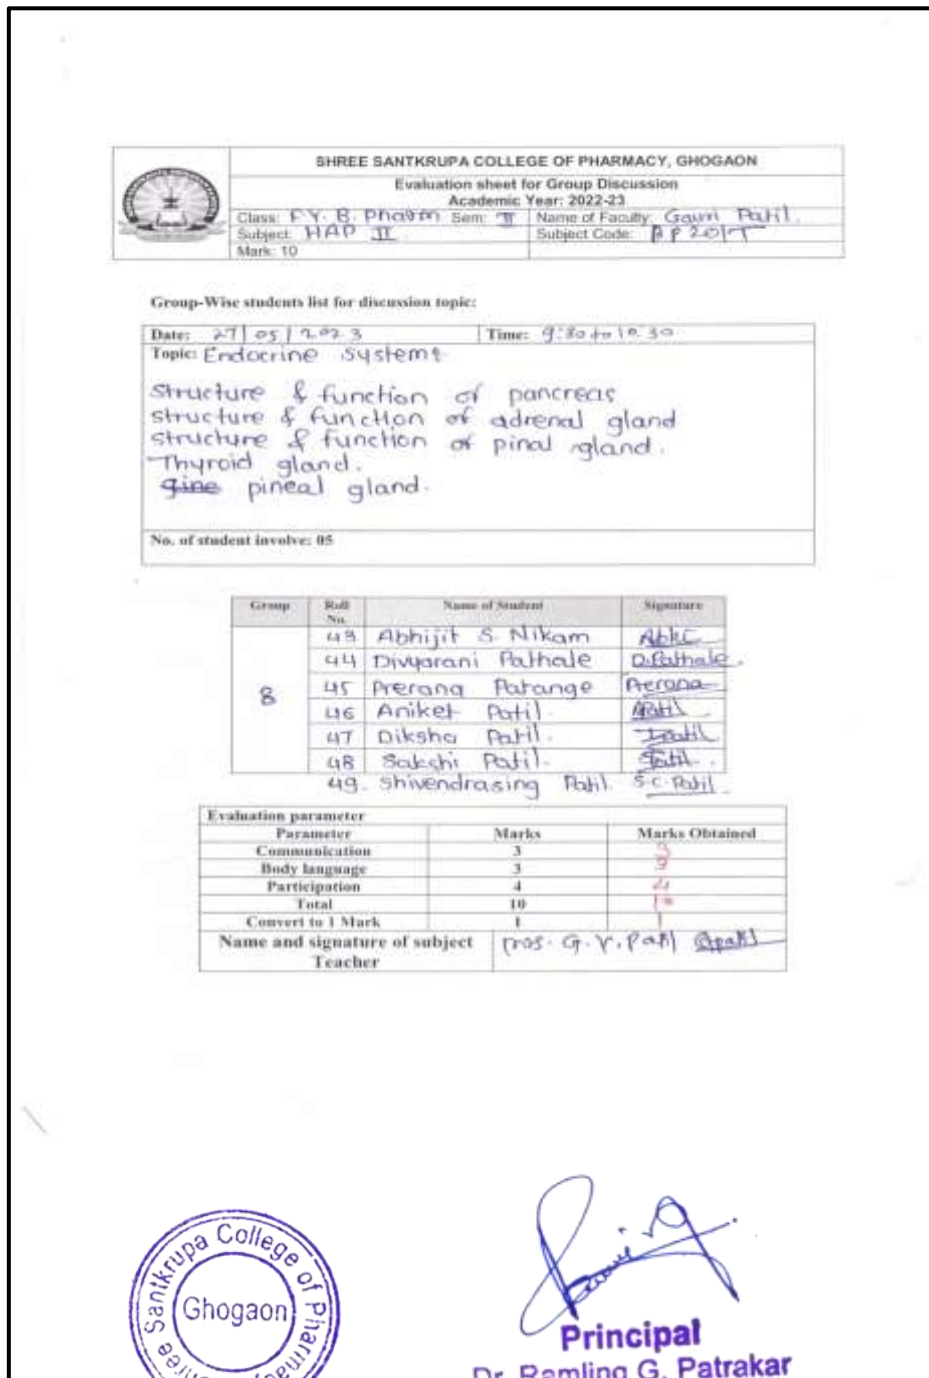 SHREE SANTKRUPA COLLEGE OF PHARMACY, GHOGAON
Evaluation sheet for Group Discussion
Academic Year: 2022-23
Class: F Y. B. Pharm Sem: II Name of Faculty: Gauri Patil.
Subject: HAP II Subject Code: BP 201T
Mark: 10
Group-Wise students list for discussion topic:
Date: 27/05/2023 Time: 9:30 to 10.30
Topic: Endocrine systemt
structure & function of pancreas
structure & function of adrenal gland
structure & function of pinal gland.
Thyroid gland.
gine pineal gland.
No. of student involve: 05
Group Roll No. Name of Student Signature
8
43 Abhijit S. Nikam
44 Divyarani Pathale D.Pathale.
45 Prerana Patange Prerana
46 Aniket Patil. APatil
47 Diksha Patil.
48 Sakshi Patil.
49. Shivendrasing Patil S.C.Patil
Evaluation parameter
Parameter Marks Marks Obtained
Communication 3 3
Body language 3 3
Participation 4 4
Total 10 10
Convert to 1 Mark 1 1
Name and signature of subject Teacher G. Y. Patil
Shree Santkrupa College of Pharmacy
Ghogaon
Principal
Dr. Ramling G. Patrakar